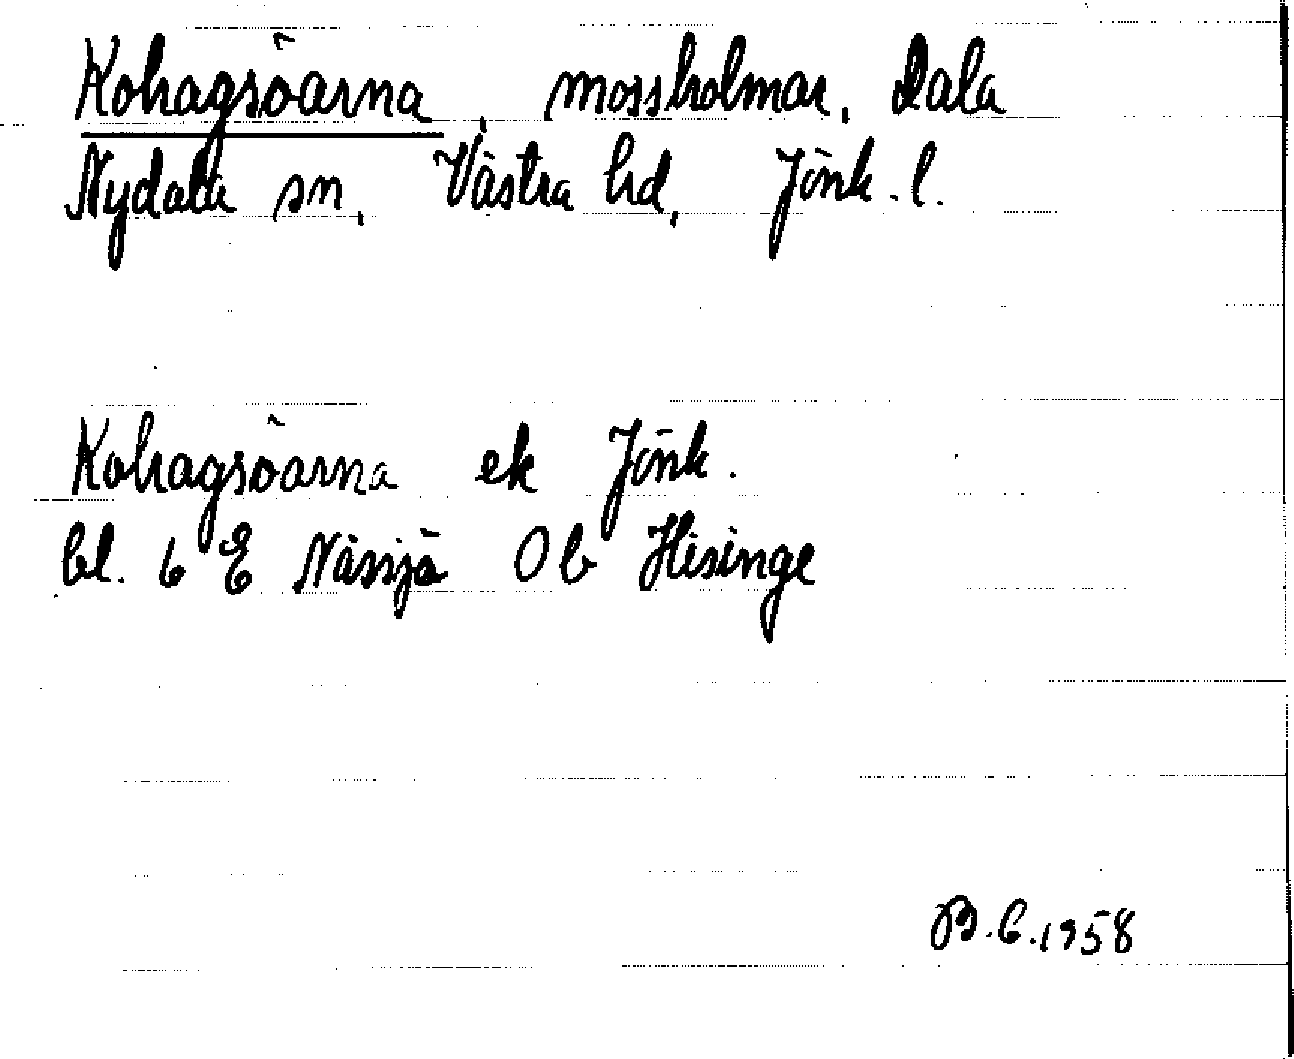 Kohagsöarna, mossholmar, Dala
Nydala sn, Västra hd, Jönk. l.
Kohagsöarna ek Jönk.
bl. 6 E Nässjö 0 b Hisinge
B.C. 1958